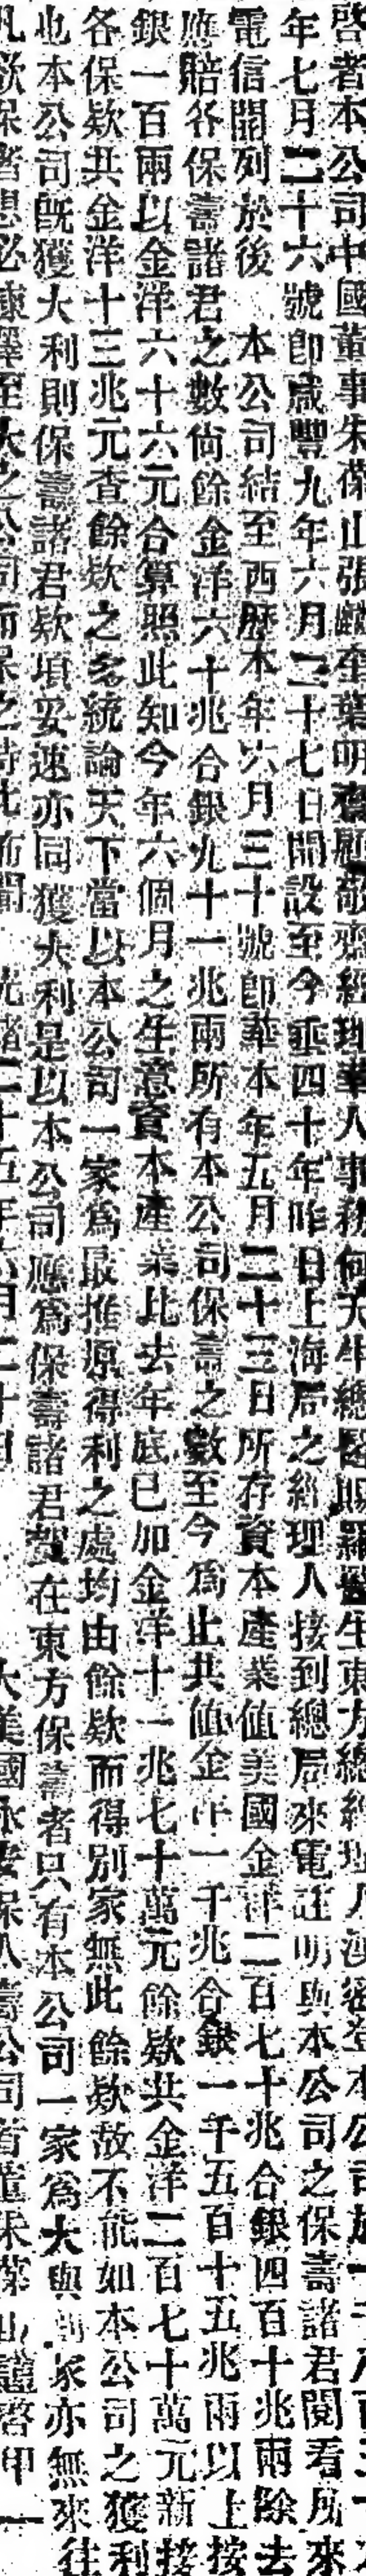 啓者本公司中國董事朱葆山張麟奎葉明齋顧敬齋經理華人事務何天生總醫賜羅醫生東方總經理人漢密登本公司於一千八百五十九
年七月二十六號卽咸豐九年六月二十七日開設至今垂四十年昨日上海局之經理人接到總局來電註明與本公司之保壽諸君閱看所來
電信開列於後 本公司結至西歷本年六月三十號卽華本年五月二十三日所存資本產業值美國金洋二百七十兆合銀四百十兆兩除去
應賠各保壽諸君之數尚餘金洋六十兆合銀九十一兆兩所有本公司保壽之數至今爲止共值金洋一千兆合銀一千五百十五兆兩以上按
銀一百兩以金洋六十六元合算照此知今年六個月之生意資本產業比去年底已加金洋十一兆七十萬元餘欵共金洋二百七十萬元新接
各保欵共金洋十三兆元查餘欵之多統論天下當以本公司一家爲最推原得利之處均由餘欵而得別家無此餘欵故不能如本公司之獲利
也本公司旣獲大利則保壽諸君欵項妥速亦同獲大利是以本公司應爲保壽諸君賀在東方保壽者只有本公司一家爲大與別家亦無來往
凡欲保者想必揀擇至大之公司而保之特此佈聞 光緒二十五年六月二十日 大美國永安保人壽公司首董朱葆山謹啓甲一